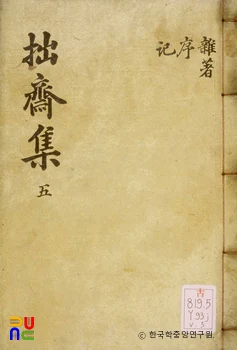 雜著
序
記
拙齋集
五
古
819.5
Y93j
v.5
ⓒ 한국학중앙연구원